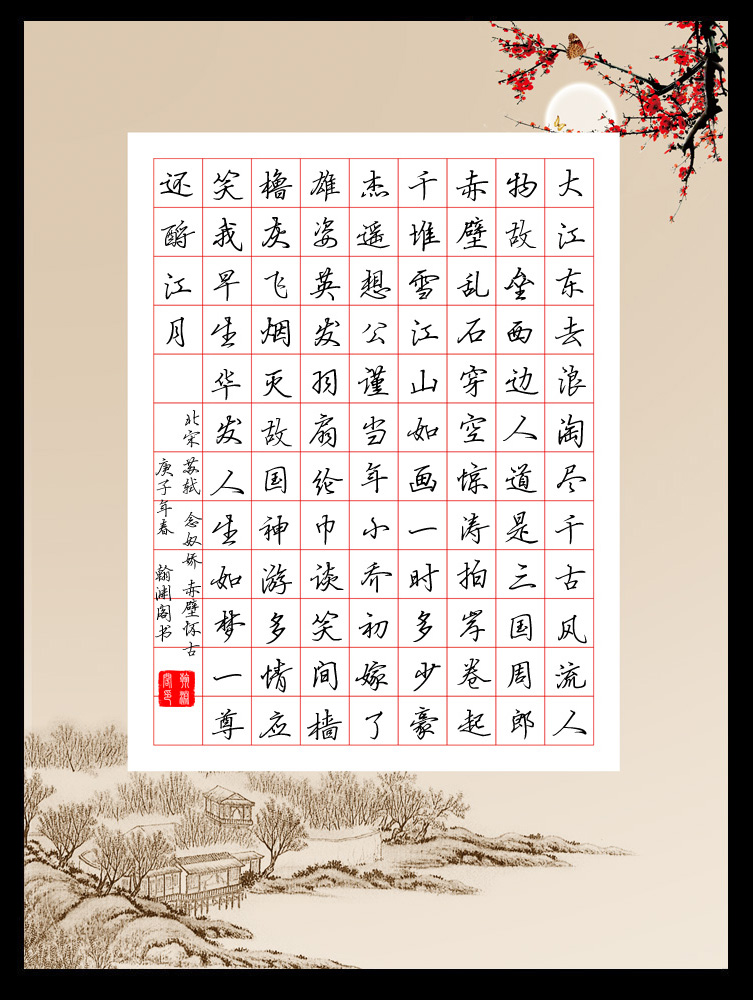 大江东去浪淘尽千古风流人
物故垒西边人道是三国周郎
赤壁乱石穿空惊涛拍岸卷起
千堆雪江山如画一时多少豪
杰遥想公谨当年小乔初嫁了
雄姿英发羽扇纶巾谈笑间樯
橹灰飞烟灭故国神游多情应
笑我早生华发人生如梦一尊
还酹江月
北宋 苏轼 念奴娇 赤壁怀古
庚子年春 翰渊阁书